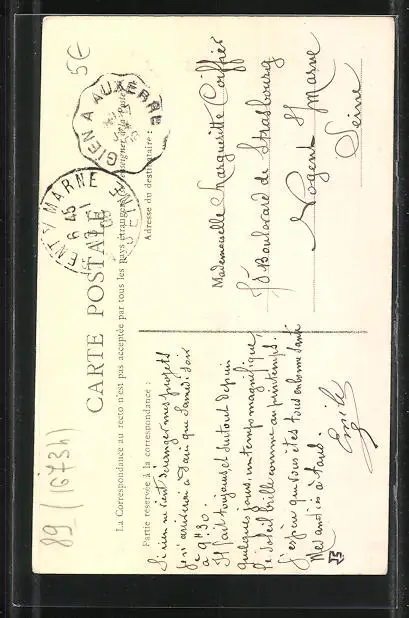 89 (16734)
5€
CARTE POSTALE
La Correspondance au recto n'est pas acceptée par tous les pays étrangers
Partie réservée à la correspondance :
Adresse du destinataire :
GIEN A AUXERRE
MARNE
6 45
SEINE
Si rien ne vient déranger mes projets
je n'arriverai à Paris que Samedi soir
à 9h30.
Il fait toujours, et surtout depuis
quelques jours, un temps magnifique,
le soleil brille comme au printemps.
J'espère que vous êtes tous en bonne santé
Mes amitiés à tous.
Emile
Mademoiselle Marguerite Coiffier
Boulevard de Strasbourg
Nogent s/ Marne
Seine